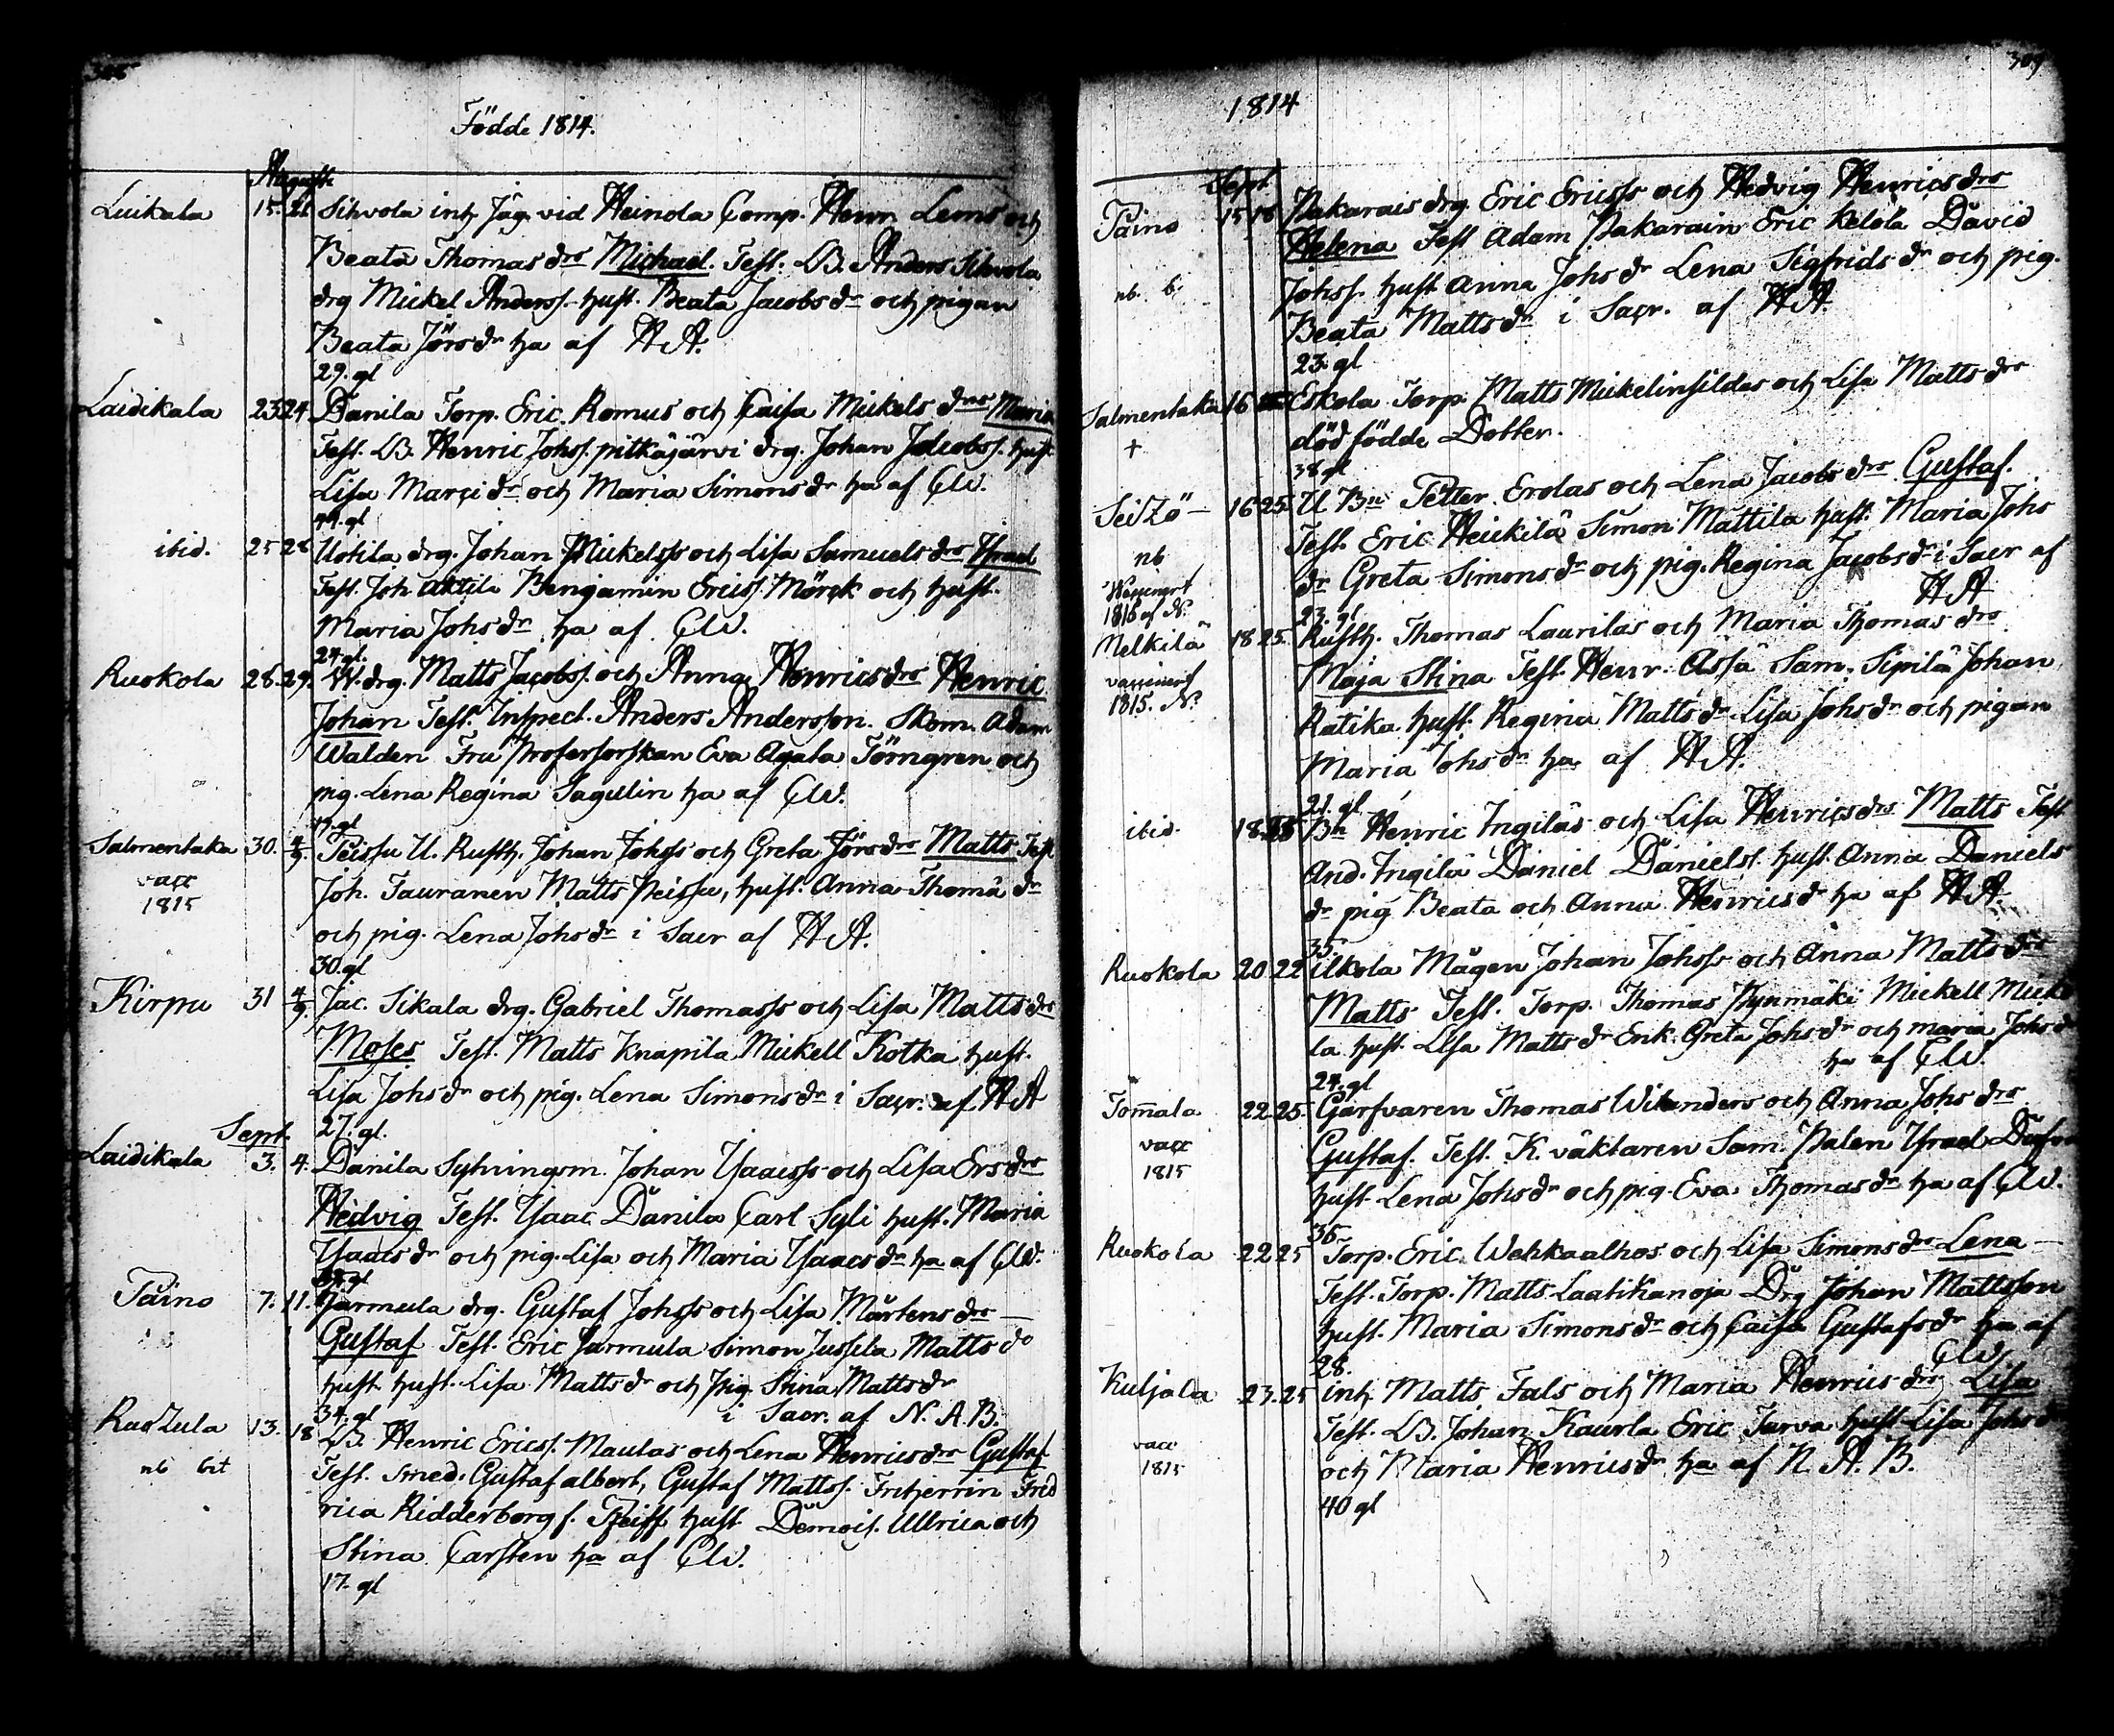 Födde 1814.
Augusti
Luikala 15. 21. Sihvola inh. Jäg. vid Heinola Comp. Henr. Lems och
Beata Thomas drs Michael. Test. B. Anders Sihvola
drg Mickel Anderss. hust. Beata Jacobs dr och pigan
Beata Jörs dr ha af HA.
29. gl
Laidikala 23 24. Danila Torp. Eric Romus och Caisa Mickels drs Maria
Test. B. Henric Johs. pitkäjärvi drg. Johan Jacobs. hust
Lisa Marci dr och Maria Simons dr ha af CW.
44. gl
ibid. 25 28 Uotila drg. Johan Mickelss och Lisa Samuels drs Israel
Test. Joh. Aktila Benjamin Ericss. Mörck och hust.
Maria Johs dr ha af CW.
24 gl.
Ruokola 28. 29. W. drg. Matts Jacobs. och Anna Henrics drs Henric
Johan Test. Inspect. Anders Andersson. Skom. Adam
Walden Fru Professorskan Eva Agata Törngren och
pig. Lena Regina Sagulin ha af CW.
17. gl
Salmentaka 30. 4/9. Peissu U. Rusth. Johan Johss och Greta Jörs drs Matts. Test
vacc Joh. Tauranen Matts Peissu, hust. Anna Thomæ dr
1815
och pig. Lena Johs dr i Sacr af HA.
30 gl
Kirpu 31 4/9. Jac. Sikala drg. Gabriel Thomass och Lisa Matts drs
Moses Test. Matts Knapila Mickell Kotka hust.
Lisa Johs dr och pig. Lena Simons dr i Sacr. af HA
Sept. 27. gl.
Laidikala 3. 4. Danila Sytningsm. Johan Isaacss och Lisa Ers drs
Hedvig Test. Isaac Danila Carl Syli hust. Maria
Isaacs dr och pig. Lisa och Maria Isaacs dr ha af CW.
gl
Taino 7. 11. Jarmula drg. Gustaf Johss och Lisa Mårtens drs
Gustaf Test. Eric Jarmula Simon Jussila Matts do
hust hust. Lisa Matts dr och pig. Stina Matts dr
34. gl i Sacr. af N. A. B.
Rautzula 13. 18 B. Henric Ericss. Maulas och Lena Henrics drs Gustaf
nb Test. Smed. Gustaf albert, Gustaf Mattss. Friherrin Fred
rica Ridderborg f. Reiff hust Demois. Ullrica och
Stina Carsten ha af CW.
17. gl
309
1814
Sept
Taino 15 18 Pakarais drg. Eric Ericss och Hedvig Henrics drs
Helena Test Adam Pakarain Eric Kelota David
nb. b. Johss. hust Anna Johs dr Lena Sigfrids dr och pig.
Beata Matts dr i Sacr. af HA.
23. gl
Salmentaka 16 Eskola Torp. Matts Mickelinsildas och Lisa Matts drs
† död födde Dotter.
38 gl
Seitzö 16 25. U Bn Petter Erolas och Lena Jacobs drs Gustaf.
nb Test. Eric Heickilä Simon Mattila hust. Maria Johs
dr Greta Simons dr och pig. Regina Jacobs dr i Sacr af
1815 af N. HA
23. gl
Melkilä 18 25. Rusth. Thomas Laurilas och Maria Thomas drs
vaccinert Maja Stina Test. Henr. Assä Sam. Sipilä Johan
1815. N. Ratika hust. Regina Matts dr Lisa Johs dr och pigan
Maria Johs dr ha af HA.
21. gl
ibid. 18. 25 Bn Henric Ingiläs och Lisa Henrics drs Matts Test
And. Ingilä Daniel Daniels. hust. Anna Daniels
dr pig Beata och Anna Henrics dr ha af HA.
35.
Ruokola 20 22 ilkola Mågen Johan Johss och Anna Matts drs
Matts Test. Torp. Thomas Pynmäki Mickell Micko
la hust. Lisa Matts dr Enk. Greta Johs dr och maria Johs dr
ha af CW.
24. gl
Tomala 22 25. Garfvaren Thomas Wilanders och Anna Johs drs
vacc Gustaf. Test. K. väktaren Sam. Palen Israel
1815 hust. Lena Johs dr och pig. Eva Thomas dr ha af CW.
36.
Ruokola 22 25 Torp. Eric Wehkaalhos och Lisa Simons drs Lena
Test. Torp. Matts Laatikanoja Drg Johan Mattsson
hust. Maria Simons dr och Caisa Gustafs dr ha af
28. CW.
Kuljala 23. 25 inh. Matts Fals och Maria Henrics drs Lisa
vacc Test. B. Johan Kaurla Eric Jarva hust Lisa Johs dr
1815 och Maria Henrics dr ha af N. A. B.
40 gl